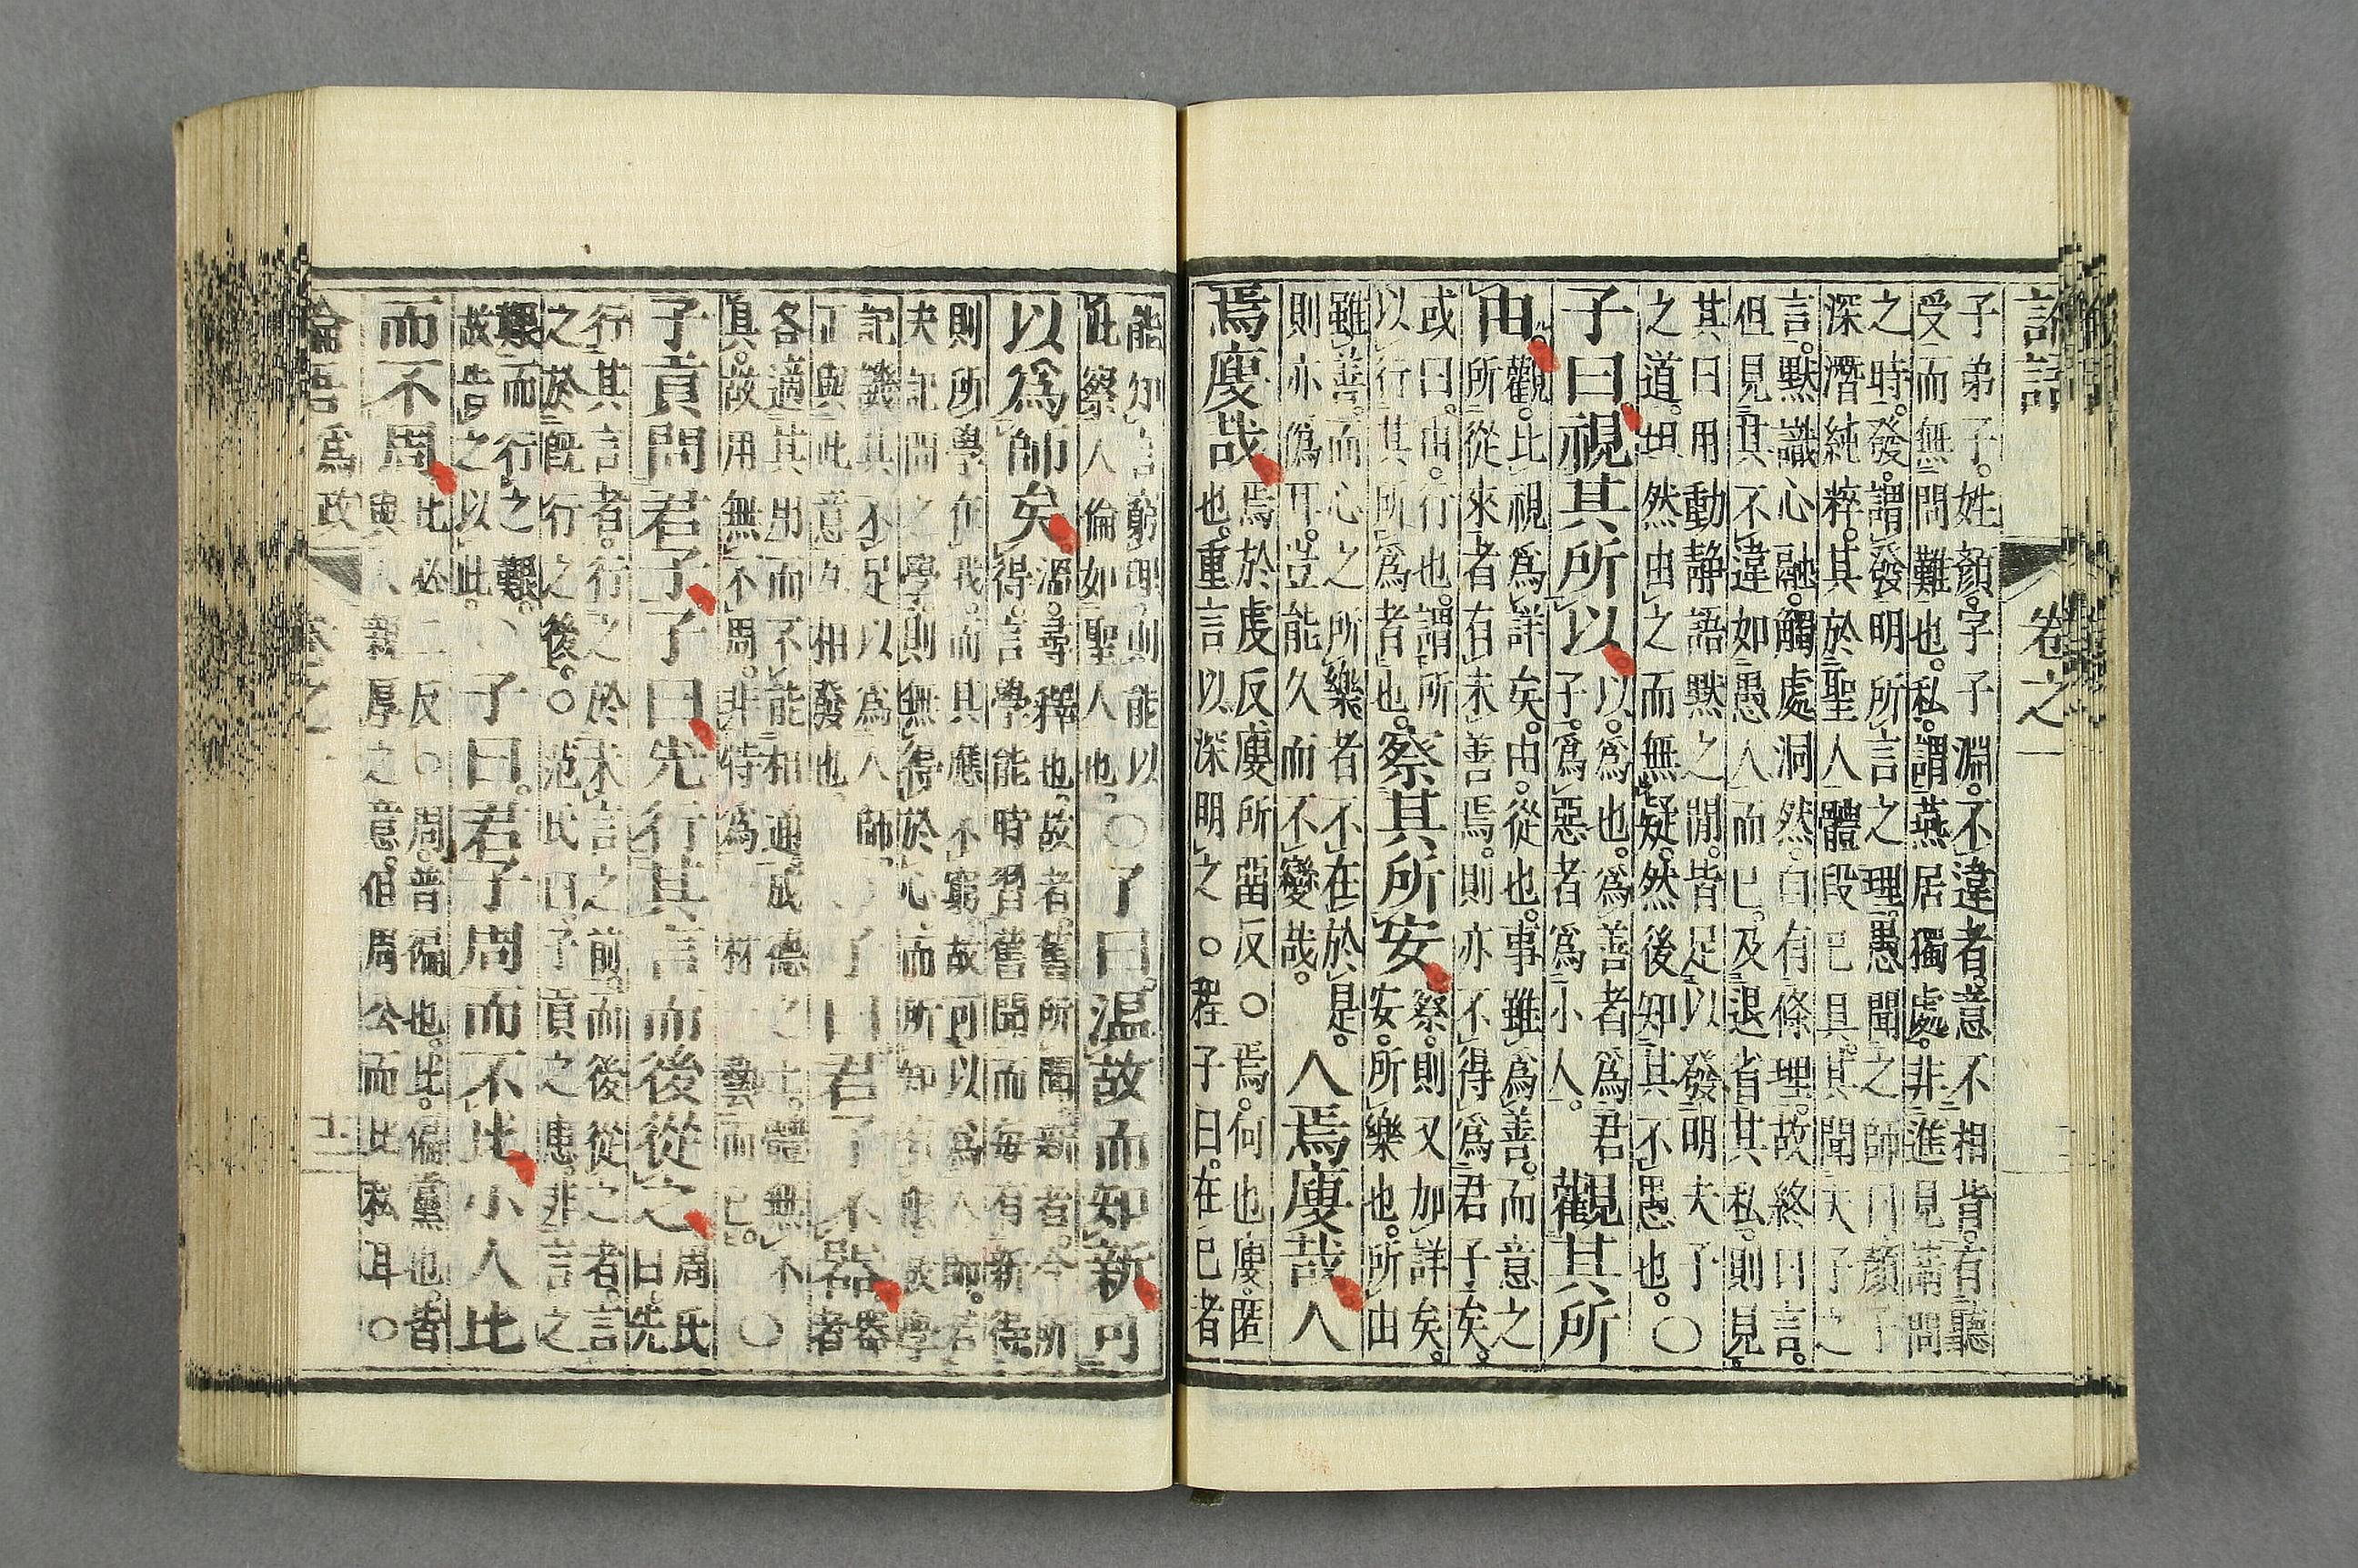 論語 卷之一
子弟子。姓顏。字子淵。不違者。意不相背。有聽
受而無問難也。私。謂燕居獨處。非進見請問
之時。發。謂發明所言之理。愚聞之師曰。顏子
深潛純粹。其於聖人體段已具。其聞夫子之
言。默識心融。觸處洞然。自有條理。故終日言。
但見其不違如愚人而已。及退省其私。則見
其日用動靜語默之閒。皆足以發明夫子
之道。坦然由之而無疑。然後知其不愚也。○
子曰視其所以
以。爲也。爲善者爲君
子。爲惡者爲小人。
觀其所
由
觀。比視爲詳矣。由。從也。事雖爲善。而意之
所從來者有未善焉。則亦不得爲君子矣。
或曰。由。行也。謂所
以行其所爲者也。
察其所安
察。則又加詳矣。
安。所樂也。所由
雖善。而心之所樂者不在於是。
則亦僞耳。豈能久而不變哉。
人焉廋哉人
焉廋哉
焉於虔反廋所留反。○焉。何也廋。匿
也。重言以深明之。○程子曰。在已者
能知言窮理。則能以
此察人倫如聖人也。
○子曰。温故而知新可
以爲師矣
溫。尋釋也。故者。舊所聞。新者。今所
得。言學能時習舊聞而每有新得。
則所學在我。而其應不窮。故可以爲人師。若
夫記問之學。則無得於心。而所知有限。故學
記譏其不足以爲人師。
正與此意互相發也。
○子曰君子不器
器者
各適其用而不能相通。成德之士。體無不
具。故用無不周。非特爲一材一藝而已。○
子貢問君子子曰先行其言而後從之
周氏
曰先
行其言者。行之於未言之前。而後從之者。言
之於既行之後。○范氏曰。子貢之患。非言之
艱。而行之艱。
故告之以此。
○子曰。君子周而不比小人比
而不周
比必二反○周。普徧也。比。偏黨也。皆
與人親厚之意。但周公而比私耳。○
論語爲政 卷之一 十二